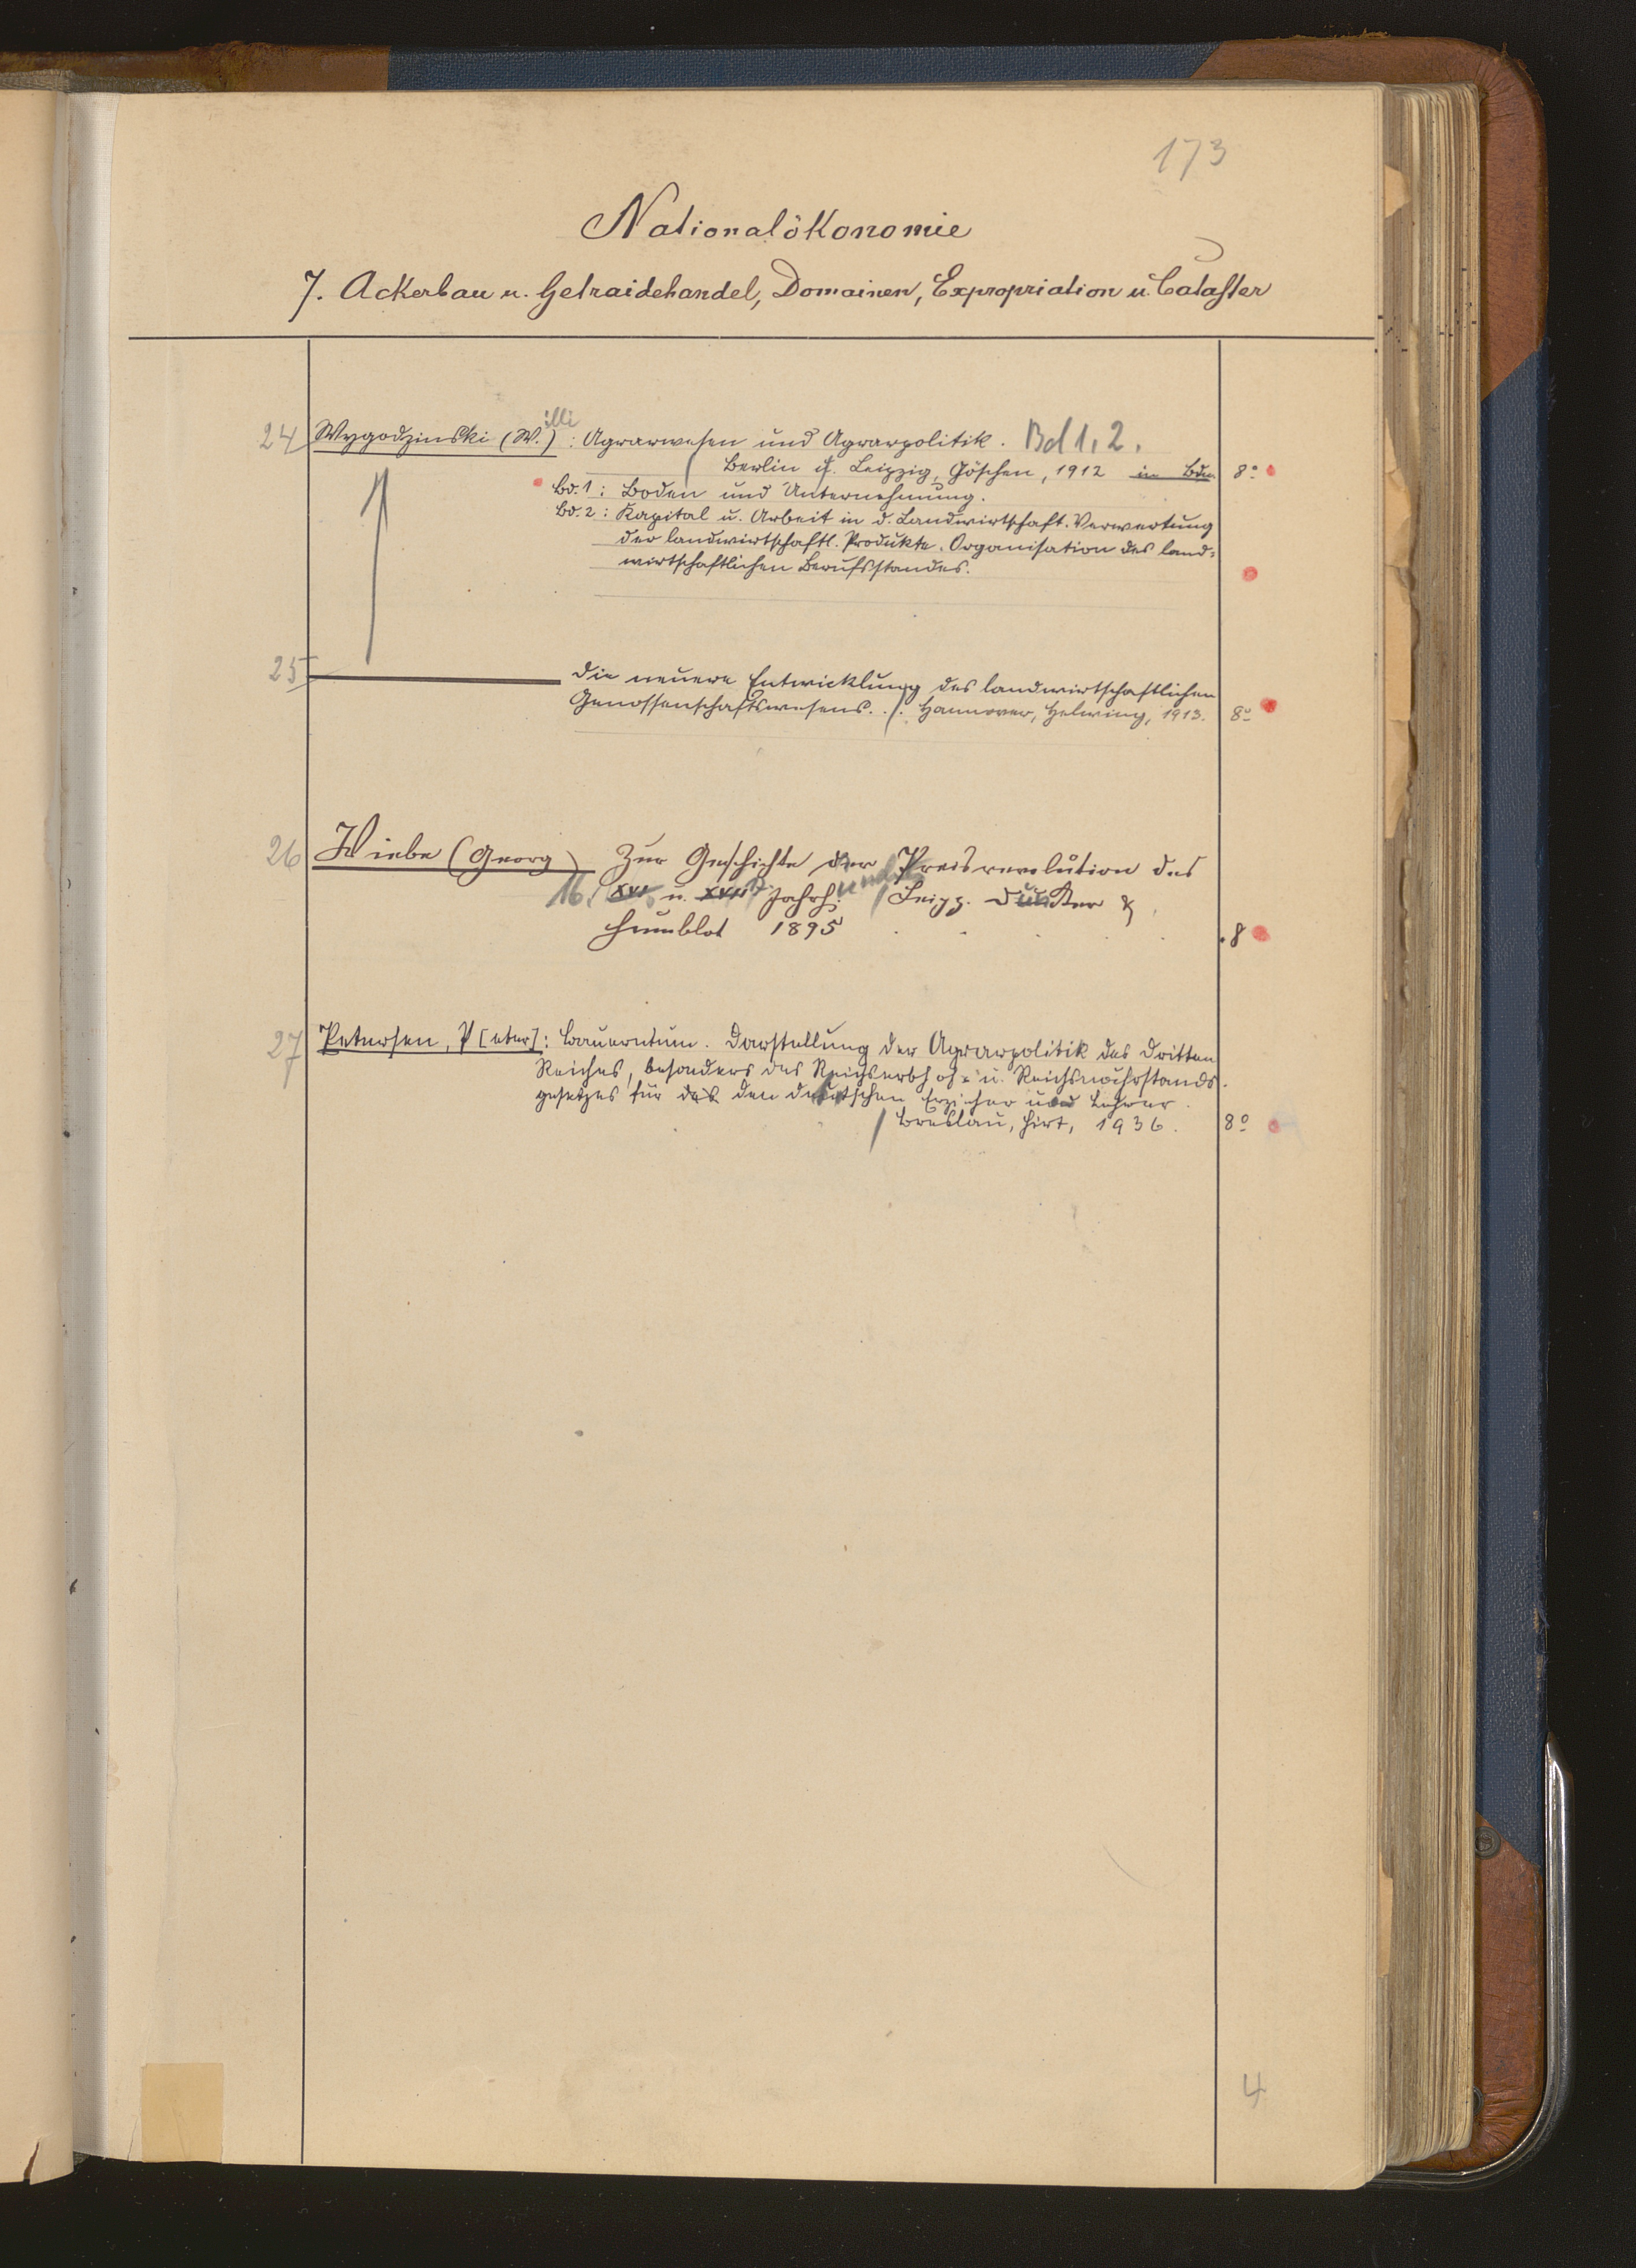 173
Nationalökonomie
7. Ackerbau u. Getraidehandel, Domainen, Expropriation u. Cataster
24 Wygodzinski (W.illi) : Agrarwesen und Agrarpolitik. Bd 1. 2.
Berlin u. Leipzig, Göschen, 1912 in Bdn. 8°
Bd. 1 : Boden und Unternehmung.
Bd. 2 : Kapital u. Arbeit in d. Landwirtschaft. Verwertung
der landwirtschaftl. Produkte. Organisation des land-
wirtschaftlichen Berufsstandes.
25 Die neuere Entwicklung des landwirtschaftlichen
Genossenschaftswesens. Hannover, Helwing, 1913. 8°
26 Wiebe (Georg) Zur Geschichte der Preisrevolution des
16. XVI u. XVII Jahrh. Leipz. Dunker &
Humblot 1895 8
27 Petersen, P[eter]: Bauerntum. Darstellung der Agrarpolitik des Dritten
Reiches, besonders des Reichserbhof- u. Reichsnährstands-
gesetzes für das den deutschen Erzieher und Lehrer.
Breslau, Hirt, 1936. 8°
4